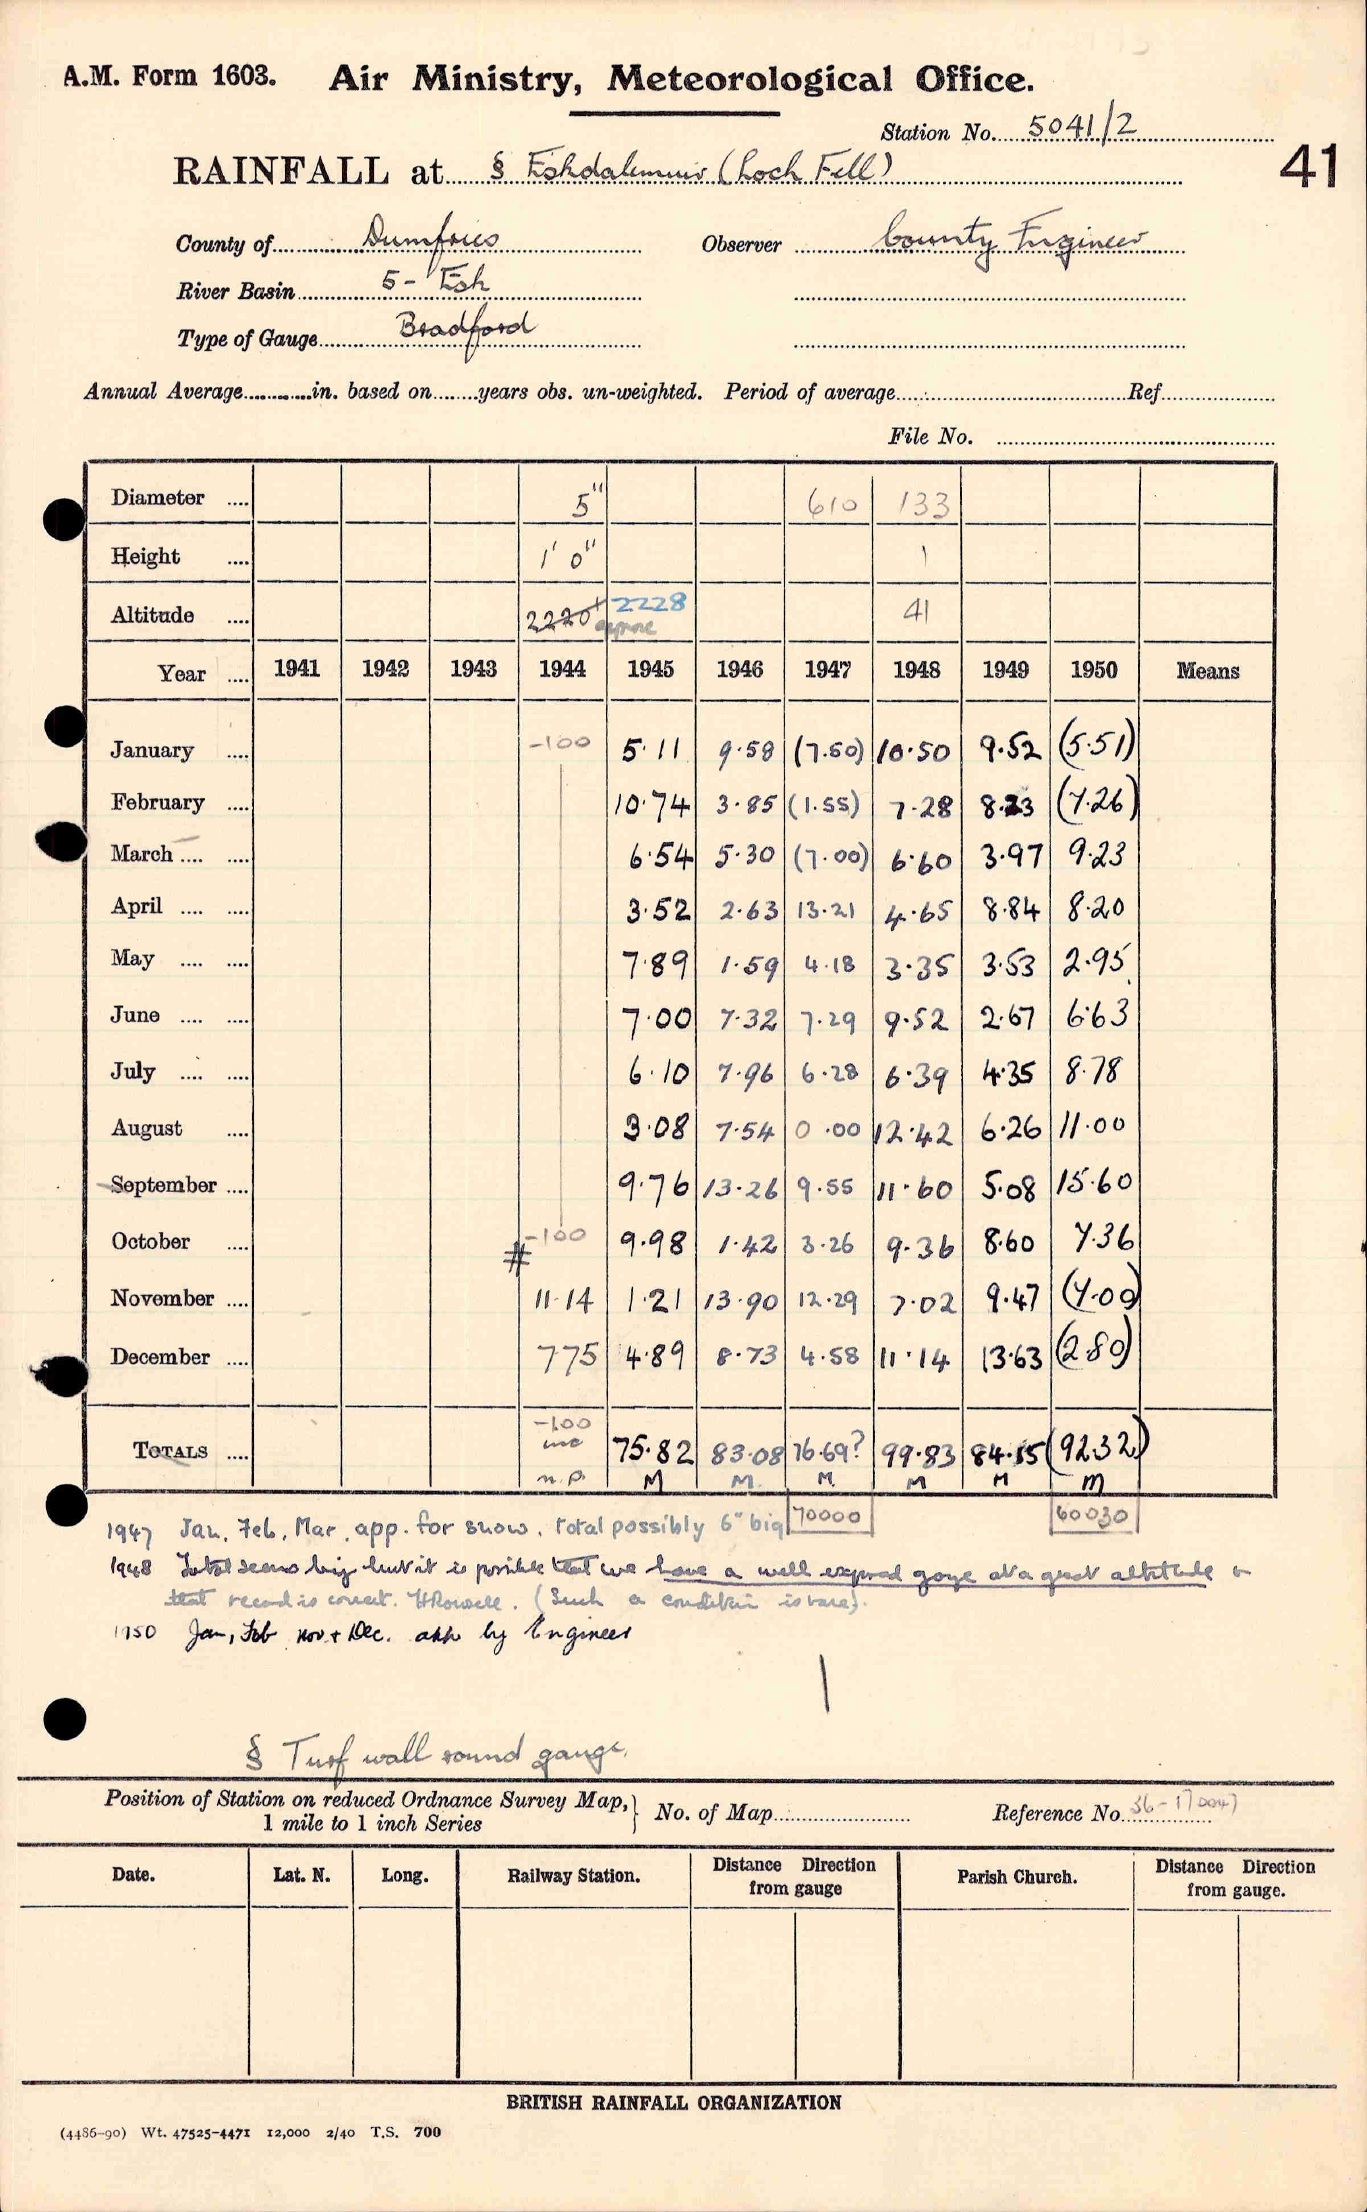 A.M. Form 1603. Air Ministry, Meteorological Office.
Station No. 5041/2
41
RAINFALL at § Eskdalemuir (Loch Fell)
County of Dumfries Observer County Engineer
River Basin 5 - Esk
Type of Gauge Bradford
Annual Average in. based on years obs. un-weighted. Period of average Ref
File No.
Diameter 5" 610 133
Height 1' 0" 1
Altitude 2220' 2228 41
Year 1941 1942 1943 1944 1945 1946 1947 1948 1949 1950 Means
January -100 5.11 9.58 (7.50) 10.50 9.52 (5.51)
February 10.74 3.85 (1.55) 7.28 8.23 (7.26)
March 6.54 5.30 (7.00) 6.60 3.97 9.23
April 3.52 2.63 13.21 4.65 8.84 8.20
May 7.89 1.59 4.18 3.35 3.53 2.95
June 7.00 7.32 7.29 9.52 2.67 6.63
July 6.10 7.96 6.28 6.39 4.35 8.78
August 3.08 7.54 0.00 12.42 6.26 11.00
September 9.76 13.26 9.55 11.60 5.08 15.60
October -100 9.98 1.42 3.26 9.36 8.60 7.36
# November 11.14 1.21 13.90 12.29 7.02 9.47 (7.00)
December 775 4.89 8.73 4.58 11.14 13.63 (2.80)
TOTALS -100 inc n.p. 75.82 M 83.08 M. 76.69? M. 99.83 M 84.15 M (92.32) M
70000 60030
1947 Jan, Feb, Mar, app. for snow. total possibly 6" big
1948 Total seems big but it is possible that we have a well exposed gauge at a great altitude &
that record is correct. HRowell. (Such a condition is rare).
1950 Jan, Feb Nov & Dec. app by Engineer
§ Turf wall round gauge.
Position of Station on reduced Ordnance Survey Map, 1 mile to 1 inch Series } No. of Map Reference No. 36-17
Date. Lat. N. Long. Railway Station. Distance Direction from gauge Parish Church. Distance Direction from gauge.
BRITISH RAINFALL ORGANIZATION
(4486-90) Wt. 47525-4471 12,000 2/40 T.S. 700